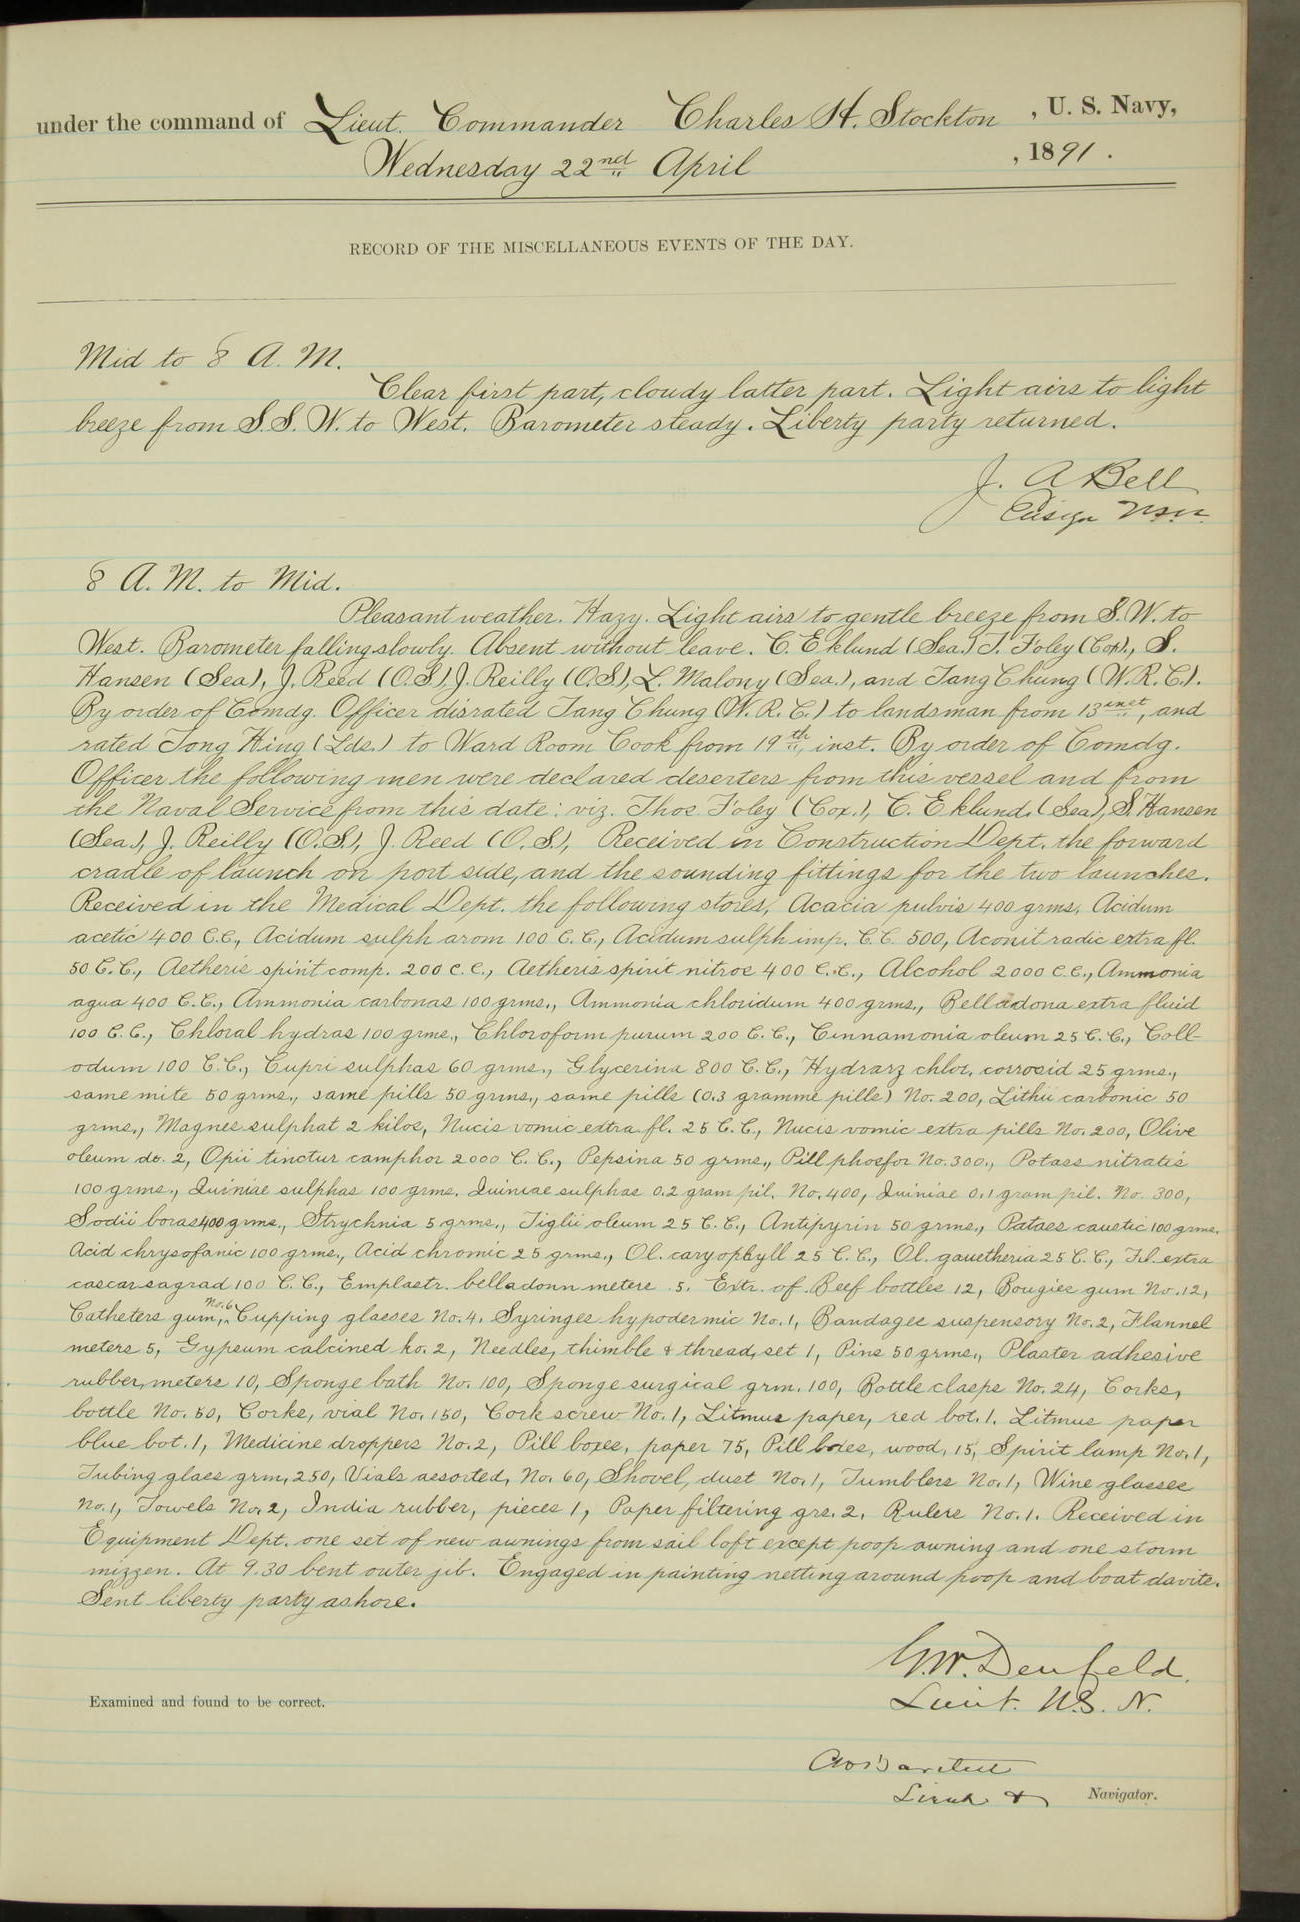 under the command of Lieut. Commander Charles H. Stockton , U. S. Navy,
Wednesday 22nd April , 1891 .
RECORD OF THE MISCELLANEOUS EVENTS OF THE DAY.
Mid to 8 A. M.
Clear first part, cloudy latter part. Light airs to light
breeze from S.S.W. to West. Barometer steady. Liberty party returned.
J. A Bell
Ensign USN.
8 A. M. to Mid.
Pleasant weather. Hazy. Light airs to gentle breeze from S.W. to
West. Barometer falling slowly. Absent without leave. C. Eklund (Sea.) T. Foley (Cox)., S.
Hansen (Sea), J. Reed (O.S.), J. Reilly (O.S.), L. Malony (Sea.), and Tang Chung (W.R.C.).
By order of Comdg. Officer disrated Tang Chung (W. R. C.) to landsman from 13 inst, and
rated Tong Hing (Lds.) to Ward Room Cook from 19th, inst. By order of Comdg.
Officer the following men were declared deserters from this vessel and from
the Naval Service from this date: viz. Thos. Foley (Cox.), C. Eklund, (Sea), S. Hansen
(Sea.), J. Reilly (O.S.), J. Reed (O. S.), Received in Construction Dept. the forward
cradle of launch on port side, and the sounding fittings for the two launches.
Received in the Medical Dept. the following stores, Acacia pulvis 400 grms, Acidum
acetic 400 C.C., Acidum sulph arom 100 C. C., Acidum sulph imp. C.C. 500, Aconit radic extra fl.
50 C.C., Aetheris spirit comp. 200 c. c., Aetheris spirit nitros 400 C.C., Alcohol 2000 C.C., Ammonia
agua 400 C.C., Ammonia carbonas 100 grms., Ammonia chloridum 400 grms., Belladona extra fluid
100 C. C., Chloral hydras 100 grms., Chloroform purum 200 C. C., Cinnamonia oleum 25 C. C., Coll-
odum 100 C.C., Cupri sulphas 60 grms., Glycerina 800 C. C., Hydrarz chlor. corrosid 25 grms.,
same mite 50 grms., same pills 50 grms., same pills (0.3 gramme pills) No. 200, Lithii carbonic 50
grms., Magnes sulphat 2 kilos, Nucis vomic extra fl. 25 C. C., Nucis vomic extra pills No. 200, Olive
oleum do. 2, Opii tinctur camphor 2000 C. C., Pepsina 50 grms., Pill phosfor No. 300., Potass nitratis
100 grms., Quiniae sulphas 100 grms. Quiniae sulphas 0.2 gram pil. No. 400, Quiniae 0.1 gram pil. No. 300,
Sodii boras 400 grms., Strychnia 5 grms., Tiglii oleum 25 C. C., Antipyrin 50 grms., Patass caustic 100 grms.
Acid chrysofanic 100 grms., Acid chromic 25 grms., Ol. caryophyll 25 C. C., Ol. gauetheria 25 C. C., Fl. extra
cascar sagrad 100 C. C., Emplastr. belladonn metere .5. Extr. of Beef bottles 12, Bougies gum No. 12,
Catheters gum, No. 6, Cupping glasses No. 4, Syringes hypodermic No. 1, Bandages suspensory No. 2, Flannel
meters 5, Gypsum calcined ko. 2, Needles, thimble & thread, set 1, Pins 50 grms., Plaster adhesive
rubber, meters 10, Sponge bath No. 100, Sponge surgical grm. 100, Bottle clasps No. 24, Corks,
bottle No. 50, Corks, vial No. 150, Cork screw No. 1, Litmus paper, red bot. 1. Litmus paper
blue bot. 1, Medicine droppers No. 2, Pill boxes, paper 75, Pill boxes, wood, 15, Spirit lamp No. 1,
Tubing glass grm, 250, Vials assorted, No. 60, Shovel, dust No. 1, Tumblers No. 1, Wine glasses
No. 1, Towels No. 2, India rubber, pieces 1, Paper filtering grs. 2, Rulers No. 1. Received in
Equipment Dept. one set of new awnings from sail loft except poop awning and one storm
mizzen. At 9.30 bent outer jib. Engaged in painting netting around poop and boat davits.
Sent liberty party ashore.
G. W. Denfeld.
Lieut. U. S. N.
Examined and found to be correct.
Lieut &
Navigator.